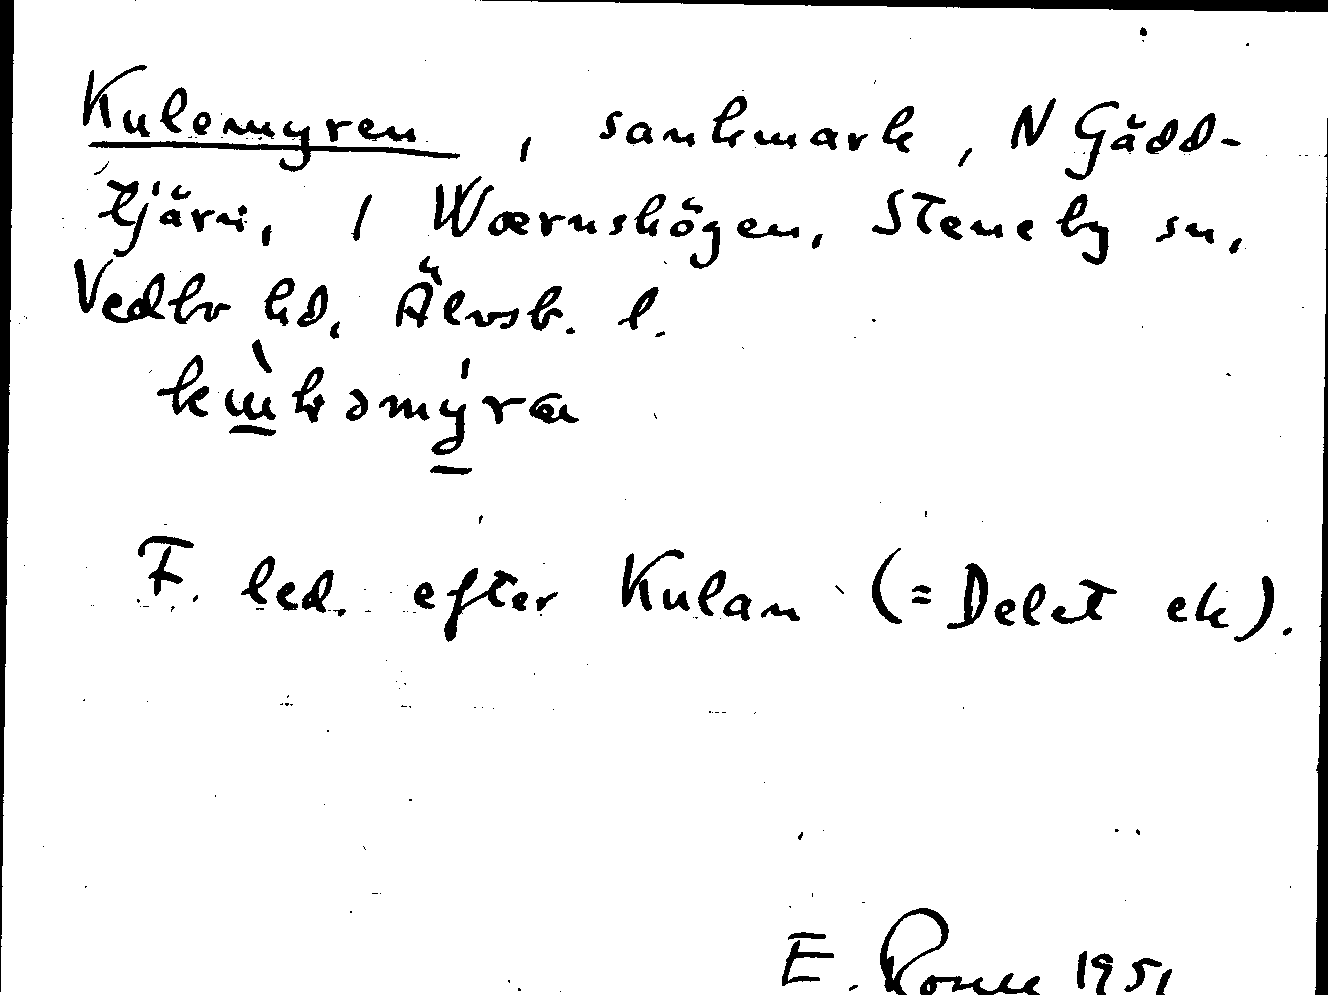 Kulemyren, sankmark, N Gädd-
tjärn, / Wærnskögen, Steneby sn,
Vedbo hd, Älvsb. l.
F. led. efter Kulan (= Delet ek).
E. 1951